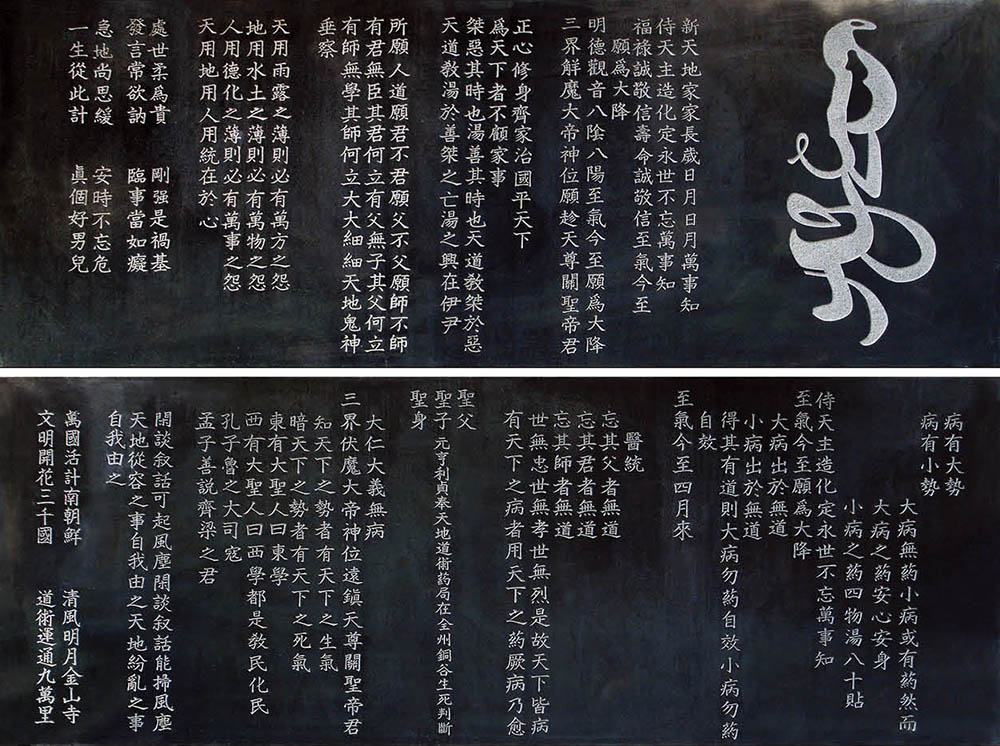 新天地家家長歲日月日月萬事知
侍天主造化定永世不忘萬事知
福祿誠敬信壽命誠敬信至氣今至
願爲大降
明德觀音八陰八陽至氣今至願爲大降
三界解魔大帝神位願趁天尊關聖帝君
正心修身齊家治國平天下
爲天下者不顧家事
桀惡其時也湯善其時也天道敎桀於惡
天道敎湯於善桀之亡湯之興在伊尹
所願人道願君不君願父不父願師不師
有君無臣其君何立有父無子其父何立
有師無學其師何立大大細細天地鬼神
垂察
天用雨露之薄則必有萬方之怨
地用水土之薄則必有萬物之怨
人用德化之薄則必有萬事之怨
天用地用人用統在於心
處世柔爲貴 剛强是禍基
發言常欲訥 臨事當如癡
急地尚思緩 安時不忘危
一生從此計 眞個好男兒
病有大勢
病有小勢
大病無葯小病或有葯然而
大病之葯安心安身
小病之葯四物湯八十貼
侍天主造化定永世不忘萬事知
至氣今至願爲大降
大病出於無道
小病出於無道
得其有道則大病勿葯自效小病勿葯
自效
至氣今至四月來
醫統
忘其父者無道
忘其君者無道
忘其師者無道
世無忠世無孝世無烈是故天下皆病
有天下之病者用天下之葯厥病乃愈
聖父
聖子 元亨利貞奉天地道術葯局在全州銅谷生死判斷
聖身
大仁大義無病
三界伏魔大帝神位遠鎭天尊關聖帝君
知天下之勢者有天下之生氣
暗天下之勢者有天下之死氣
東有大聖人曰東學
西有大聖人曰西學都是敎民化民
孔子魯之大司寇
孟子善説齊梁之君
閑談叙話可起風塵閑談叙話能掃風塵
天地從容之事自我由之天地紛亂之事
自我由之
萬國活計南朝鮮 清風明月金山寺
文明開花三千國 道術運通九萬里